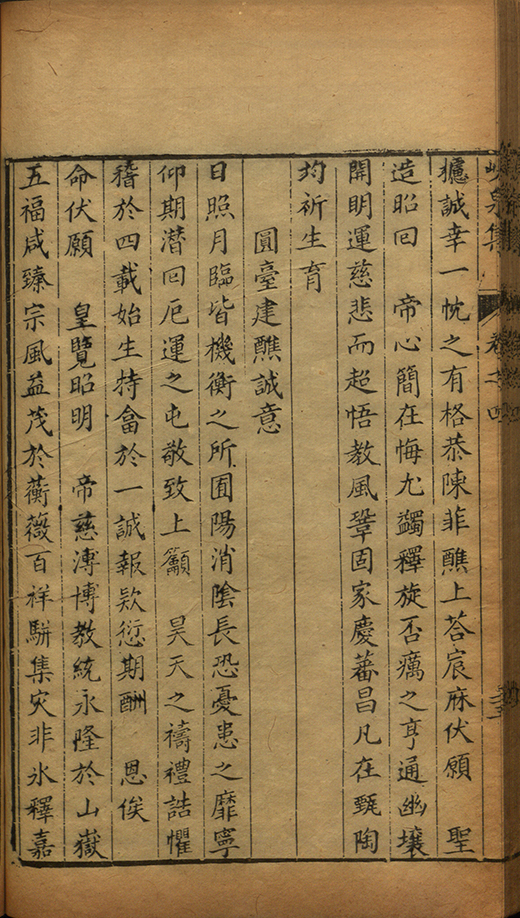 峴泉集 卷之四
攄誠幸一忱之有格恭陳菲醮上荅宸庥伏願 聖
造昭回 帝心簡在悔尤蠲釋旋否癘之亨通幽壤
開明運慈悲而超悟教風鞏固家慶蕃昌凡在甄陶
均祈生育
圓臺建醮誠意
日照月臨皆機衡之所囿陽消陰長恐憂患之靡寧
仰期潛回厄運之屯敬致上籲 昊天之禱禮詰懼
稽於四載始生特畣於一誠報欵愆期酬 恩俟
命伏願 皇覽昭明 帝慈溥博教統永隆於山嶽
五福咸臻宗風益茂於蘅薇百祥駢集灾非氷釋嘉